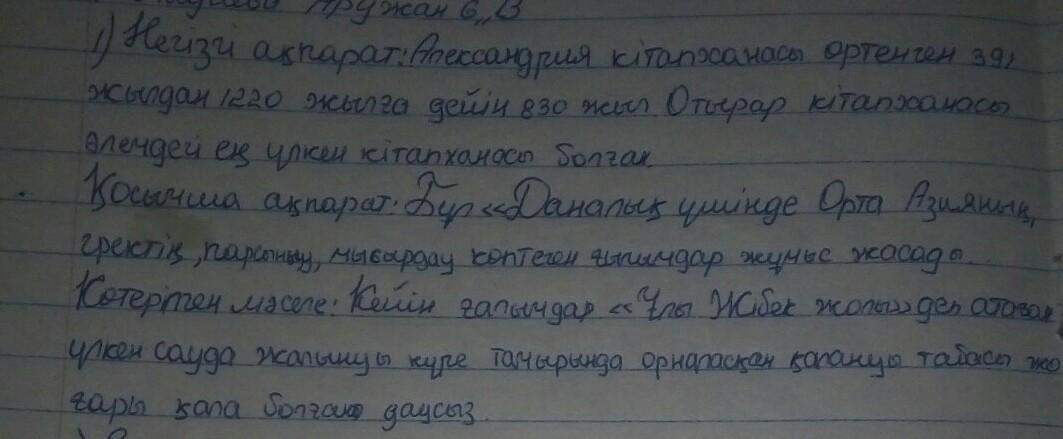 Аружан 6 „В
1) Негізгі ақпарат: Александрия кітапханасы өртенген 391
жылдан 1220 жылға дейін 830 жыл Отырар кітапханасы
әлемдей ең үлкен кітапханасы болған
Қосымша ақпарат: Бұл «Даналық үшінде Орта Азияның,
гректің, парсының, мысырдың көптеген ғылымдар жұмыс жасады.
Көтерілген мәселе: Кейін ғалымдар «Ұлы Жібек жолы» деп атаған
үлкен сауда жолының күре тамырында орналасқан қаланың табысы жо
ғары қала болғаны даусыз.